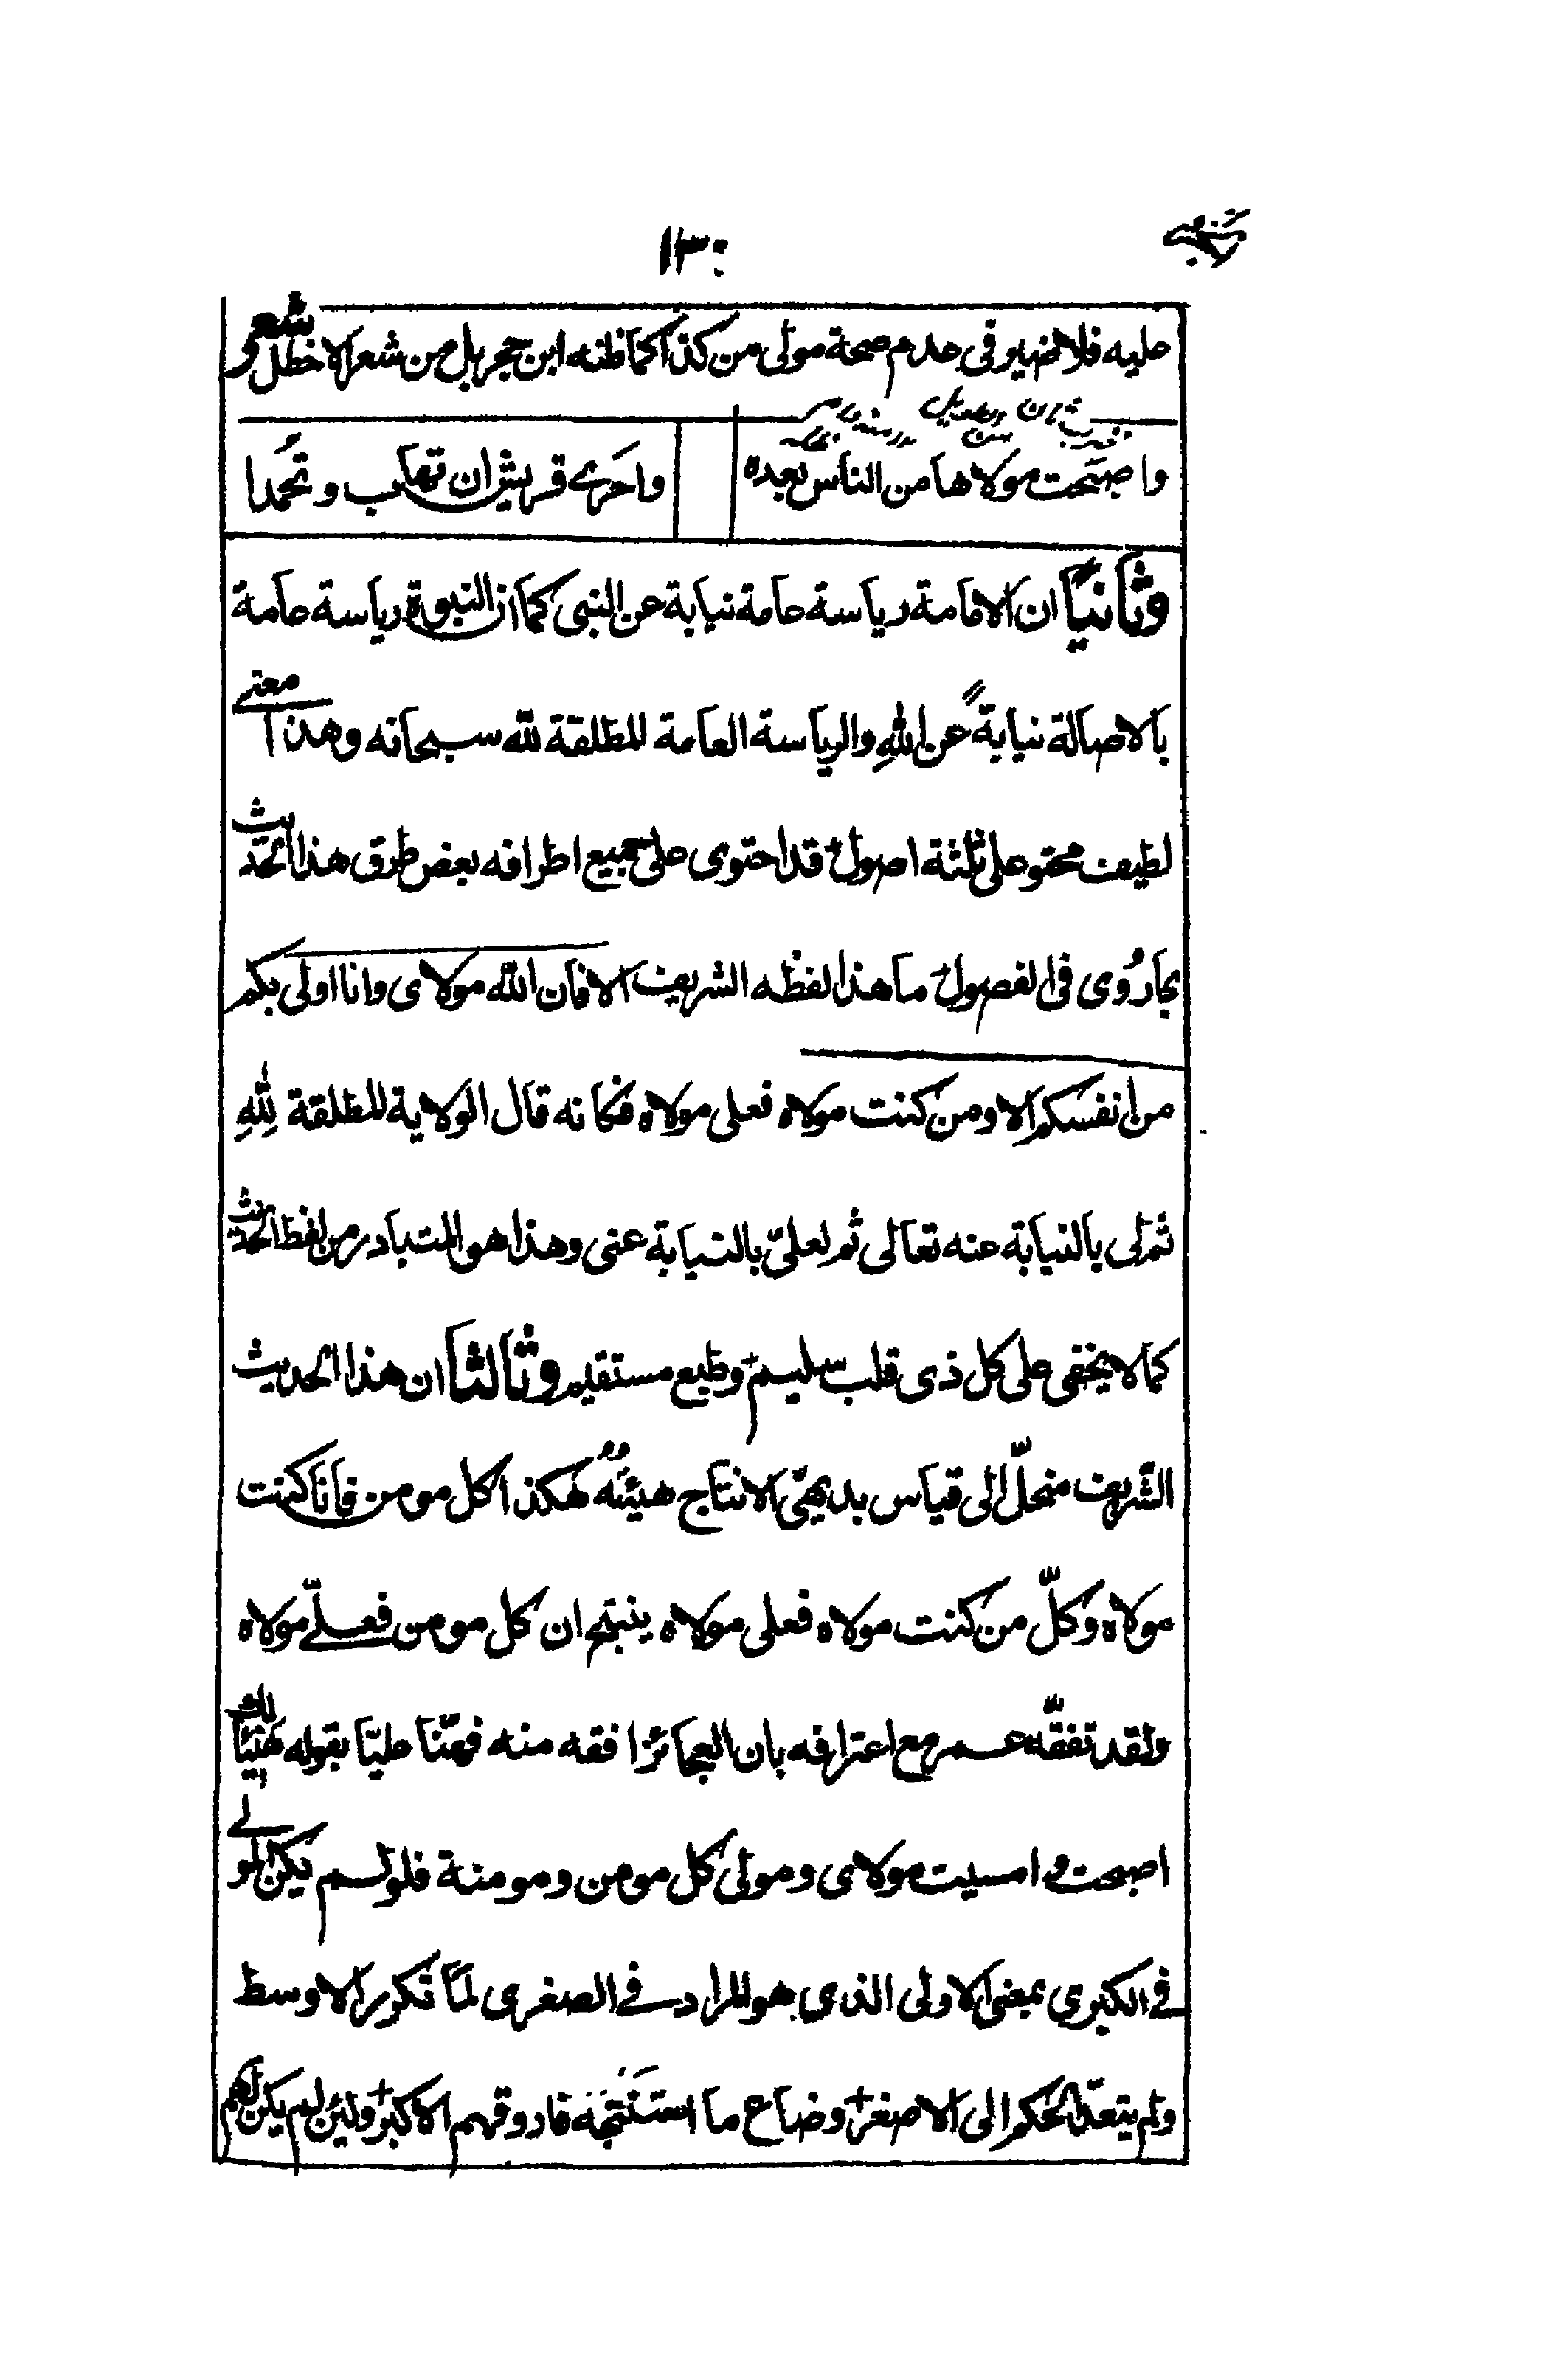 ١٣٠
عليه فلا ضير في عدم صحة مولى من كذا كما ظنه ابن حجر بل من شعر الاخطل شعر
واصبحت مولاها من الناس بعده واحرى قريش ان تهاب وتحمدا
وثانيًا ان الامامة رياسة عامة نيابة عن النبى كما ان النبوة رياسة عامة
بالاصالة نيابةً عن اللهِ والرياسة العامة المطلقة لله سبحانه وهذا معنى
لطيف محتو على ثلثة اصول قد احتوى على جميع اطرافه بعض طرق هذا الحديث
بما رُوى فى الفصول ما هذا لفظه الشريف الا فان الله مولاى وانا اولى بكم
من انفسكم الا ومن كنت مولاه فعلى مولاه فكانه قال الولاية المطلقة لِلّٰهِ
ثم لى بالنيابة عنه تعالى ثم لعلىّ بالنيابة عنى وهذا هو المتبادر من لفظ الحديث
كما لا يخفى على كل ذى قلب سليم وطبع مستقيم وثالثا ان هذا الحديث
الشّريف منحلّ الى قياس بديهىّ الانتاج هيئتُهُ هٰكذا كل مومن فانا كنت
مولاه وكلّ من كنت مولاه فعلى مولاه ينتج ان كل مومن فعلىّ مولاه
ولقد تفقّه عمر مع اعترافه بان العجائز افقه منه فهنّا عليّا بقوله هنيئًا لك
اصبحت وامسيت مولاى ومولى كل مومن ومومنة فلو لم يكن المولى
فى الكبرى بمعنى الاولى الذى هو المراد فى الصغرى لمّا تكرر الاوسط
ولم يتعدّ الحكم الى الاصغر وضاع ما استنتجه فاروقهم الاكبر ولئن لم يكن لهم